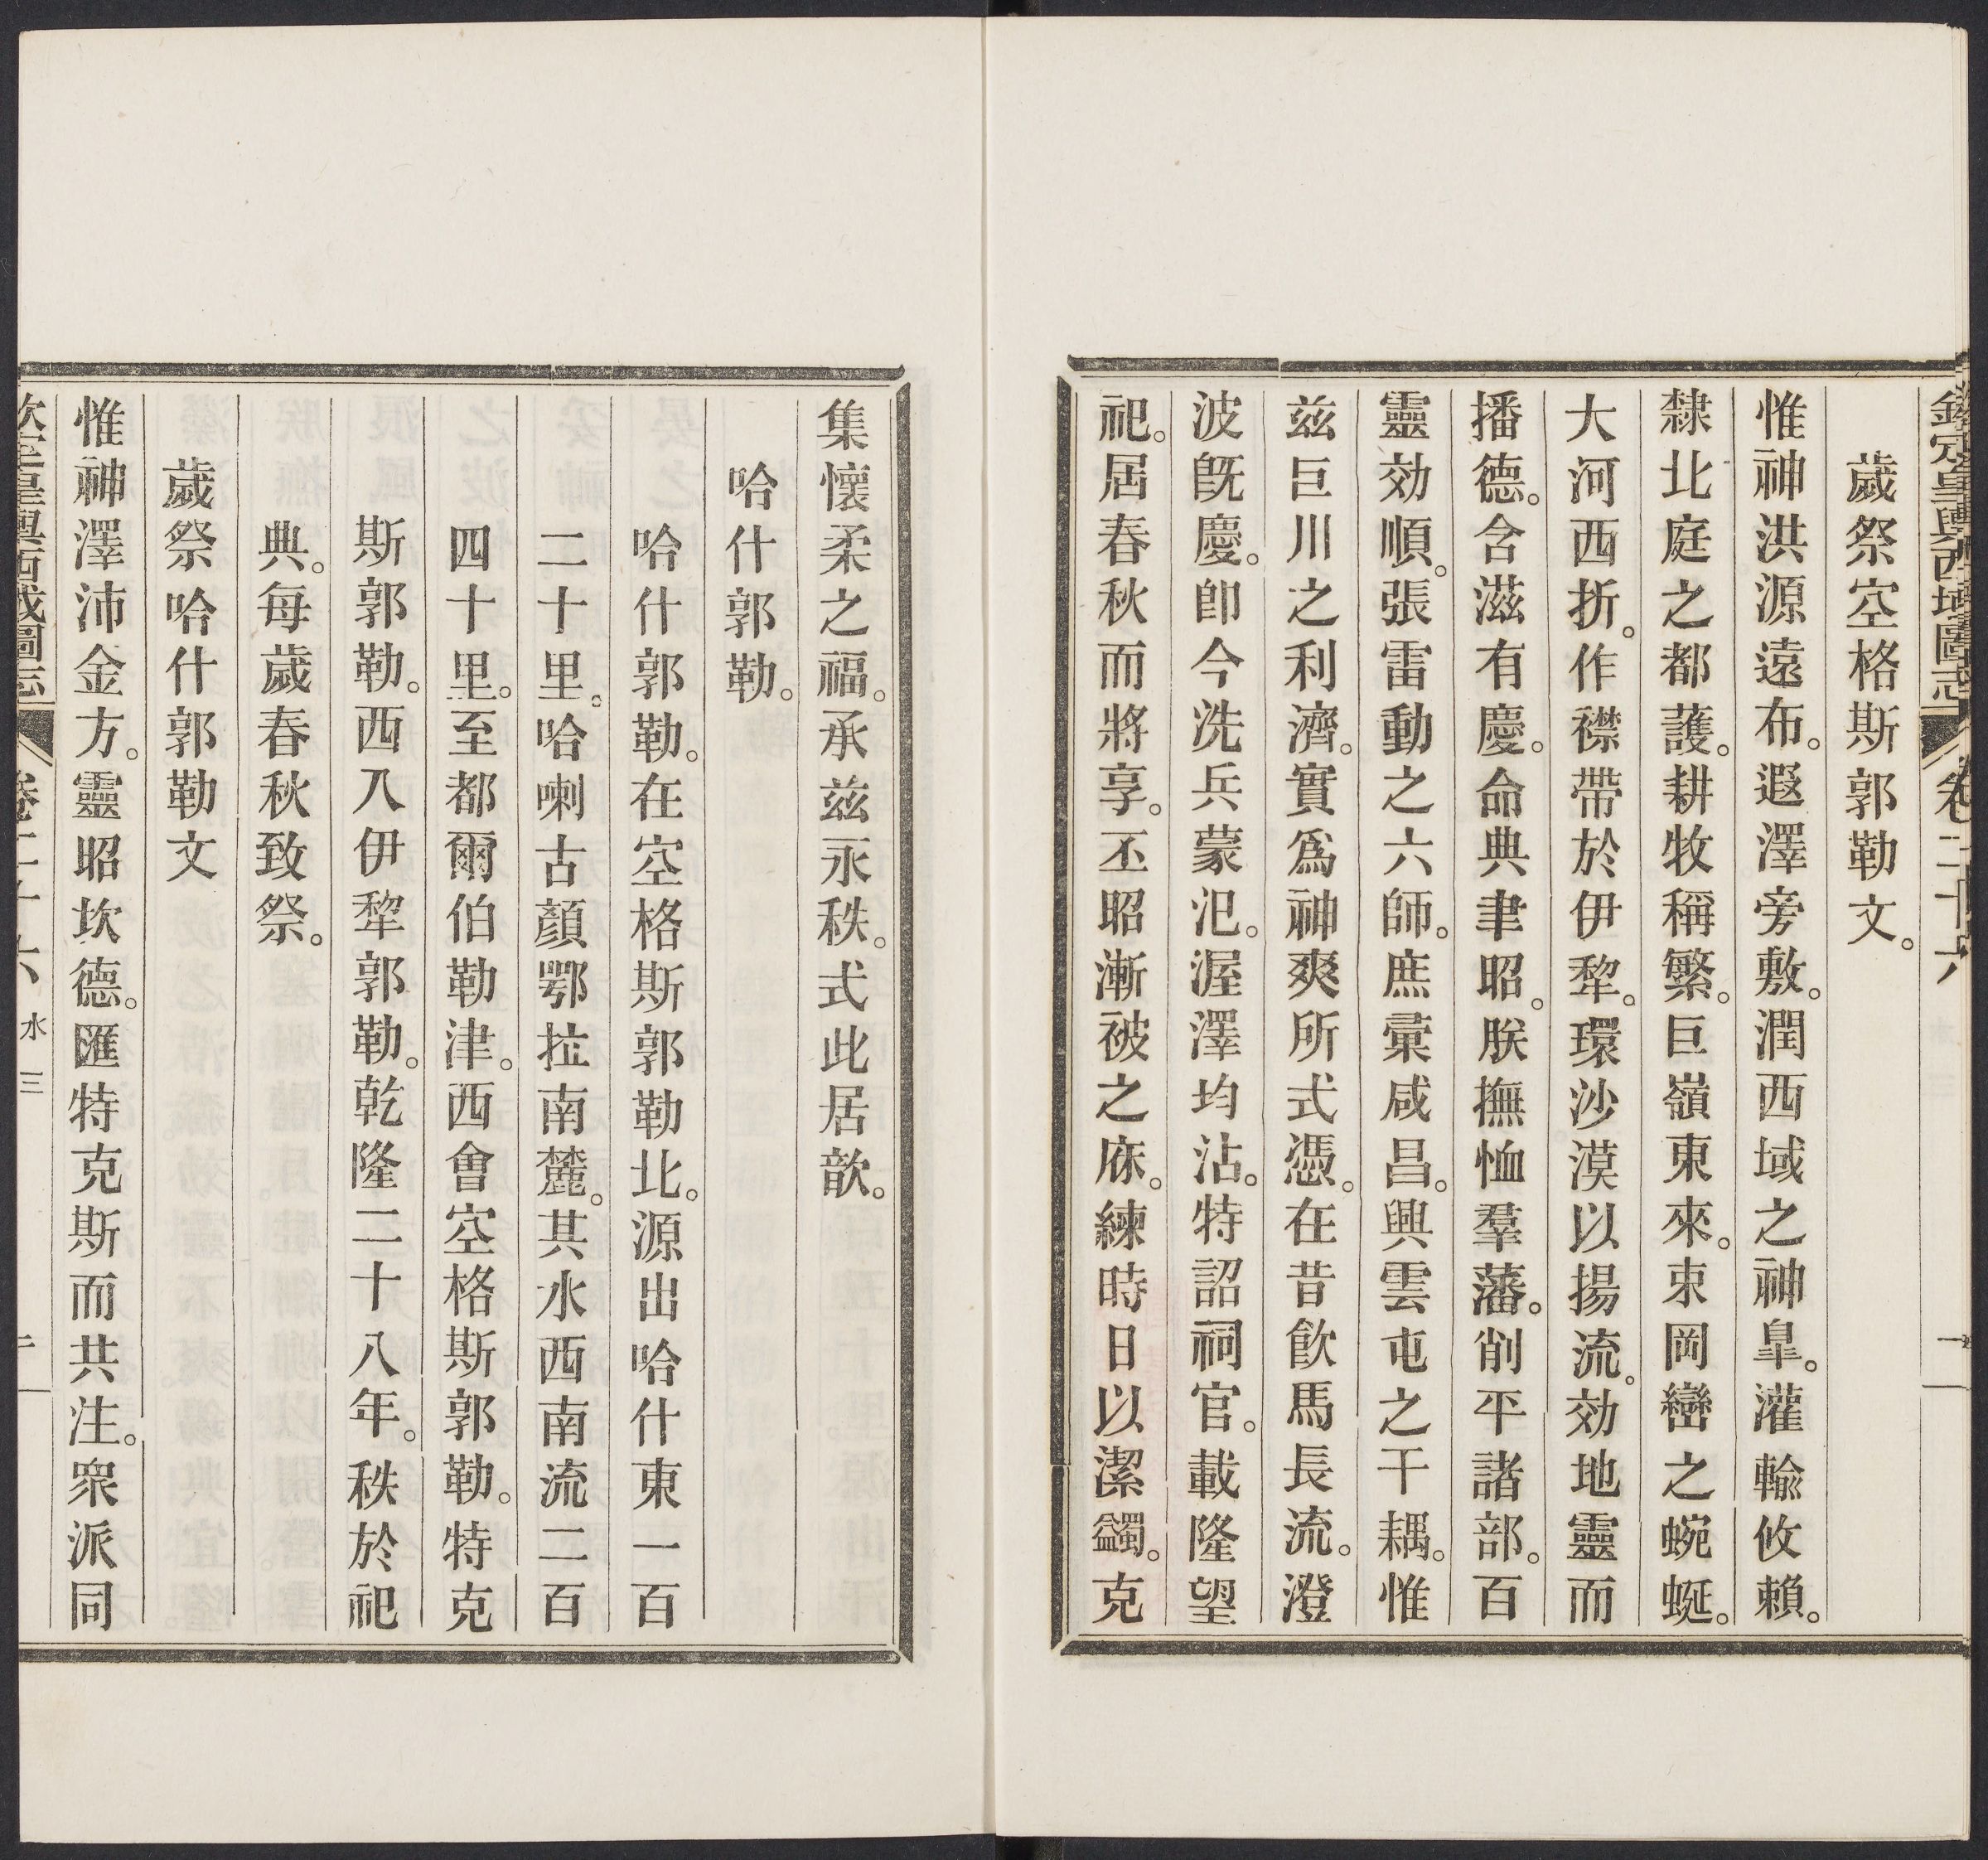 欽定皇輿西域圖志 卷二十六 一
歲祭空格斯郭勒文。
惟神洪源遠布。遐澤旁敷。潤西域之神臯。灌輸攸賴。
隸北庭之都護。耕牧稱繁。巨嶺東來。束岡巒之蜿蜒。
大河西折。作襟帶於伊犂。環沙漠以揚流。効地靈而
播德。含滋有慶。命典聿昭。朕撫恤羣藩。削平諸部。百
靈効順。張雷動之六師。庶彙咸昌。興雲屯之千耦。惟
兹巨川之利濟。實爲神爽所式憑。在昔飲馬長流。澄
波旣慶。卽今洗兵蒙汜。渥澤均沾。特詔祠官。載隆望
祀。居春秋而將享。丕昭漸被之庥。練時日以潔蠲。克
集懷柔之福。承兹永秩。式此居歆。
哈什郭勒。
哈什郭勒。在空格斯郭勒北。源出哈什東一百
二十里。哈喇古顏鄂拉南麓。其水西南流二百
四十里。至都爾伯勒津。西會空格斯郭勒。特克
斯郭勒。西入伊犂郭勒。乾隆二十八年。秩於祀
典。每歲春秋致祭。
歲祭哈什郭勒文
惟神澤沛金方。靈昭坎德。匯特克斯而共注。衆派同
欽定皇輿西域圖志 卷二十六 水三